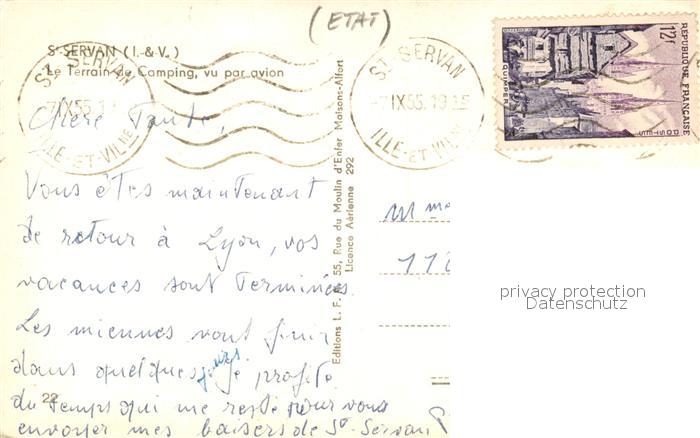 (ETAT)
S-SERVAN (I.&V.)
Le Terrain de Camping, vu par avion
ST SERVAN
-7 IX 55.1
ILLE-ET-VILNE
ST SERVAN
-7 IX 55.19 15
ILLE-ET-VILNE
12f
REPUBLIQUE FRANÇAISE
POSTES
QUIMPER
Chère Tante,
Vous êtes maintenant
de retour à Lyon, vos
vacances sont Terminées.
Les miennes vont finir
dans quelques jours je profite
du Temps qui me reste pour vous
envoyer mes baisers de St-Servan
22
Editions L. F. 55, Rue du Moulin d'Enfer Maisons-Alfort
Licence Aérienne 292
Mme
privacy protection
Datenschutz